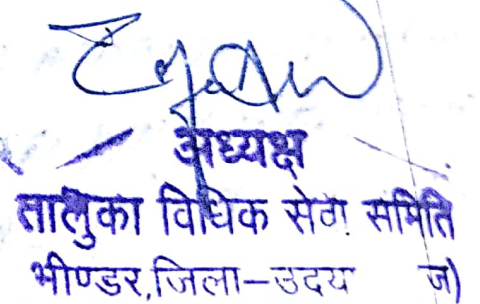 अध्यक्ष
तालुका विधिक सेवा समिति
भीण्डर,जिला-उदय ज)